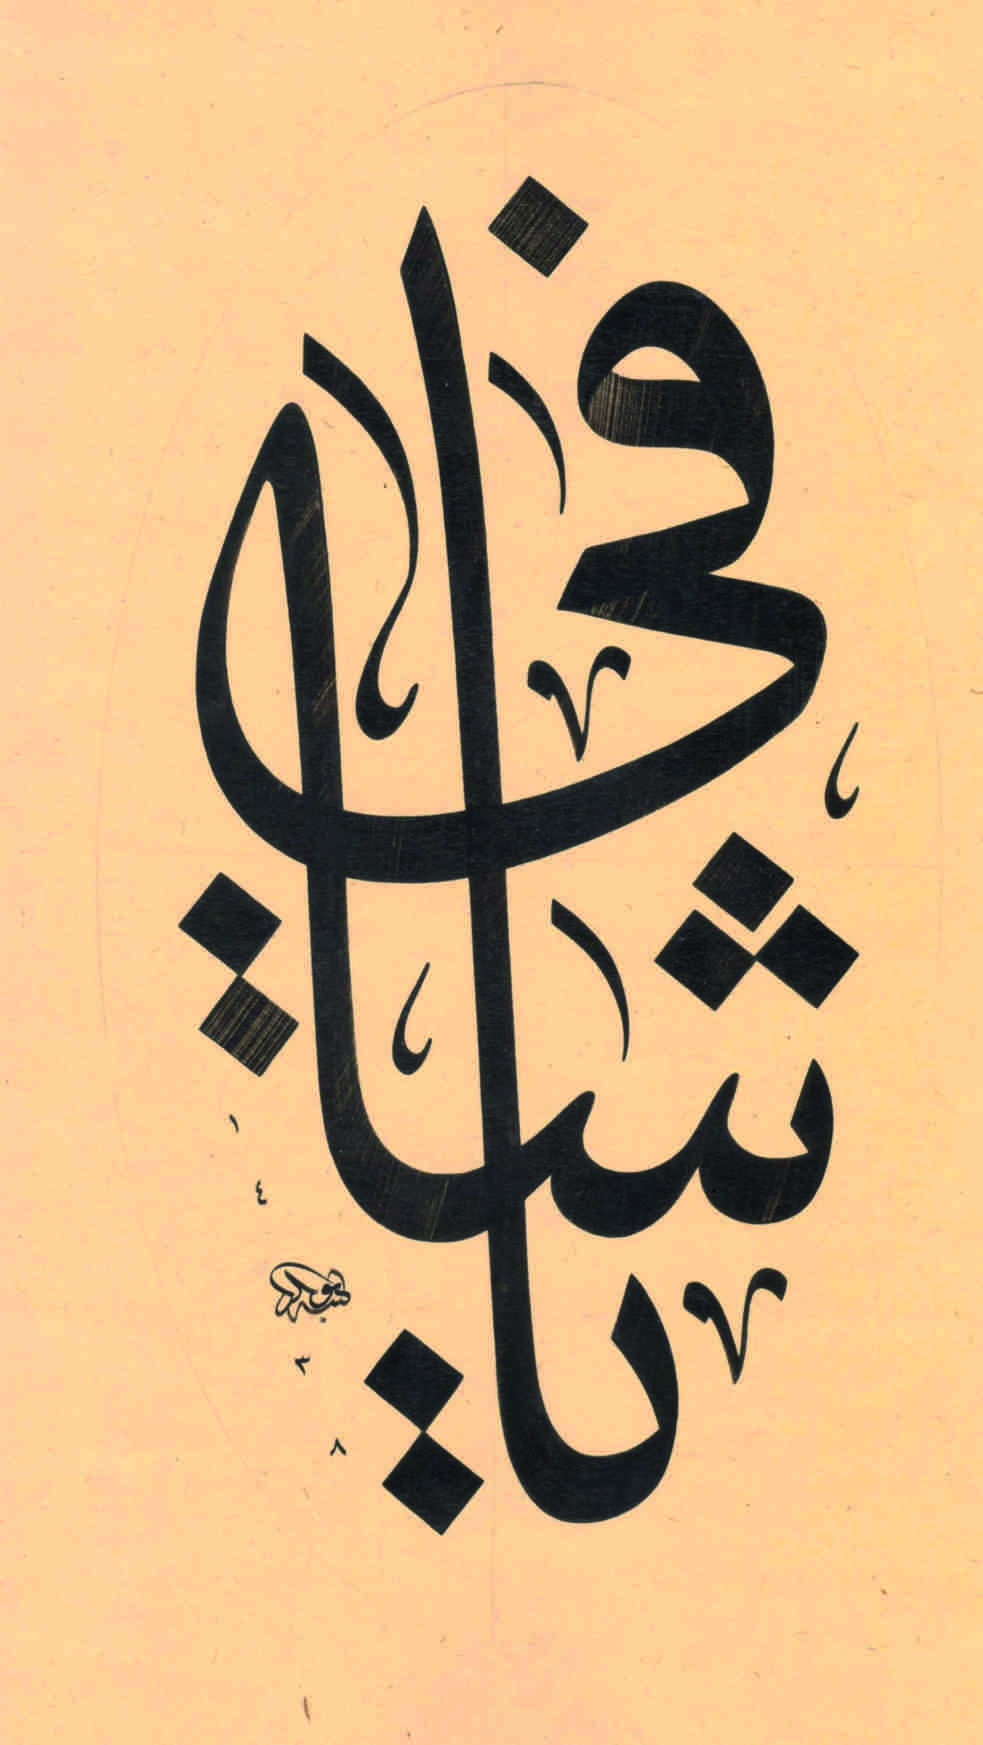 يا شافي
١٤٣٨